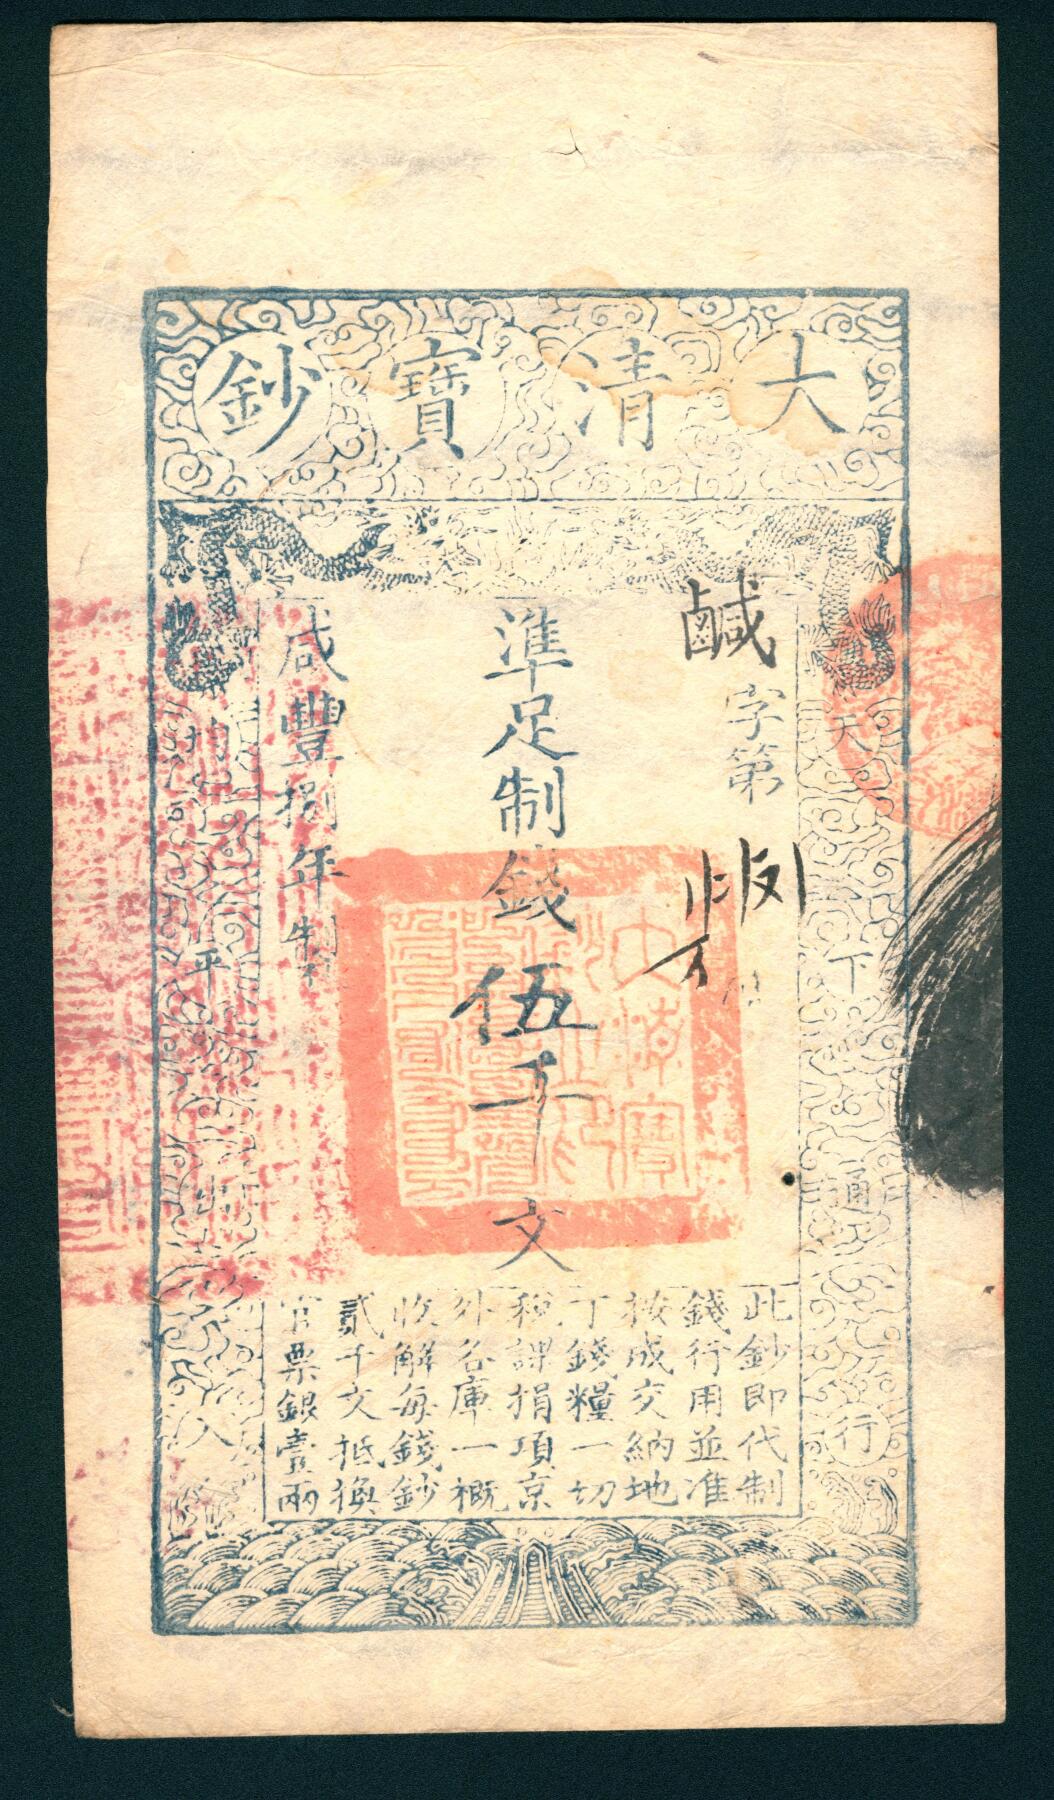 大清寶鈔
天下通行
鹹字第
準足制錢伍千文
咸豐捌年制
均平出入
此鈔即代制
錢行用並准
按成交納地
丁錢糧一切
稅課捐項京
外各庫一概
收解每錢鈔
貳千文抵換
官票銀壹兩